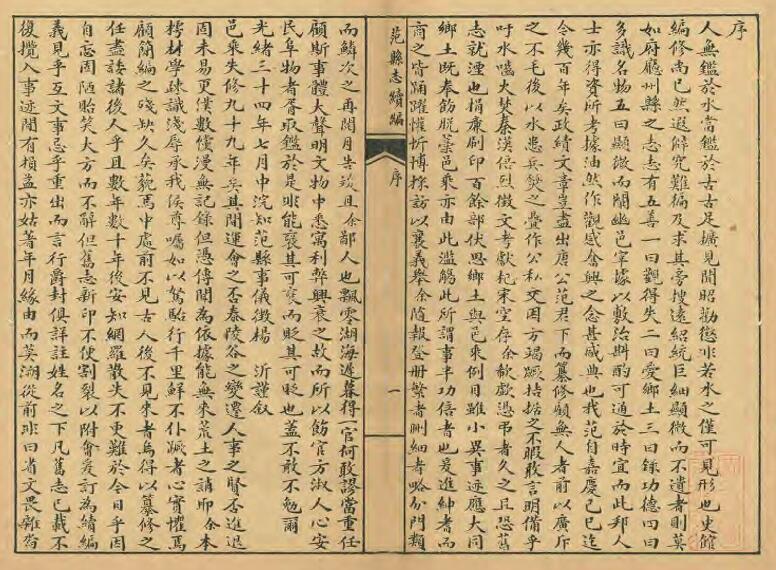 序
人無鑑於水當鑑於古古足擴見聞昭勸懲非若水之僅可見形也史館
編修尚已然遐陬究難徧及求其旁搜遠紹統巨細顯微而不遺者則莫
如府廳州縣之志志有五善一曰觀得失二曰愛鄉土三曰錄功德四曰
多識名物五曰顯微而闡幽邑宰據以敷治斟酌可通於時宜而此邦人
士亦得資所考據油然作觀感奮興之念甚盛典也我范自嘉慶己巳迄
今幾百年矣政績文章豈盡出唐公范君下而纂修顧無人者前以廣斥
之不毛後以水患兵燹之疊作公私交困方竭蹶拮据之不暇敢言明備乎
吁水嚙火焚秦漢倍烈徵文考獻杞宋空存余欷歔憑弔者久之且恐舊
志就湮也捐廉刷印百餘部伏思鄉土與邑乘例目雖小異事迹應大同
鄉土既奉飭脫藁邑乘亦由此濫觴此所謂事半功倍者也爰進紳耆而
商之皆踴躍懽忻博採訪以襄義舉余隨報登冊繁者刪細者略分門類
范縣志續編
序
一
而鱗次之再閱月告竣且余鄙人也飄零湖海遲暮得一官何敢謬當重任
顧斯事體大聲明文物中悉寓利弊興衰之故而所以飭官方淑人心安
民阜物者胥取鑑於是非能褒其可褒而貶其可貶也蓋不敢不勉爾
光緒三十四年七月中浣知范縣事儀徵楊 沂謹叙
邑乘失修九十九年矣其間運會之否泰陵谷之變遷人事之賢否進退
固未易更僕數僅漫無記錄但憑傳聞為依據能無來荒土之誚耶余本
樗材學疎識淺辱承我侯尊囑如以駑駘行千里鮮不仆蹶者心實懼焉
顧簡編之殘缺久矣苑馬中處前不見古人後不見來者烏得以纂修之
任盡諉諸後人乎且數年數十年後安知網羅散失不更難於今日乎因
自忘固陋貽笑大方而不辭但舊志新印不便割裂以附會爰訂為續編
義見乎互文事忌乎重出而言行爵封俱詳註姓名之下凡舊志已載不
復攬入事迹間有損益亦姑著年月緣由而莫溯從前非曰省文畏雜沓